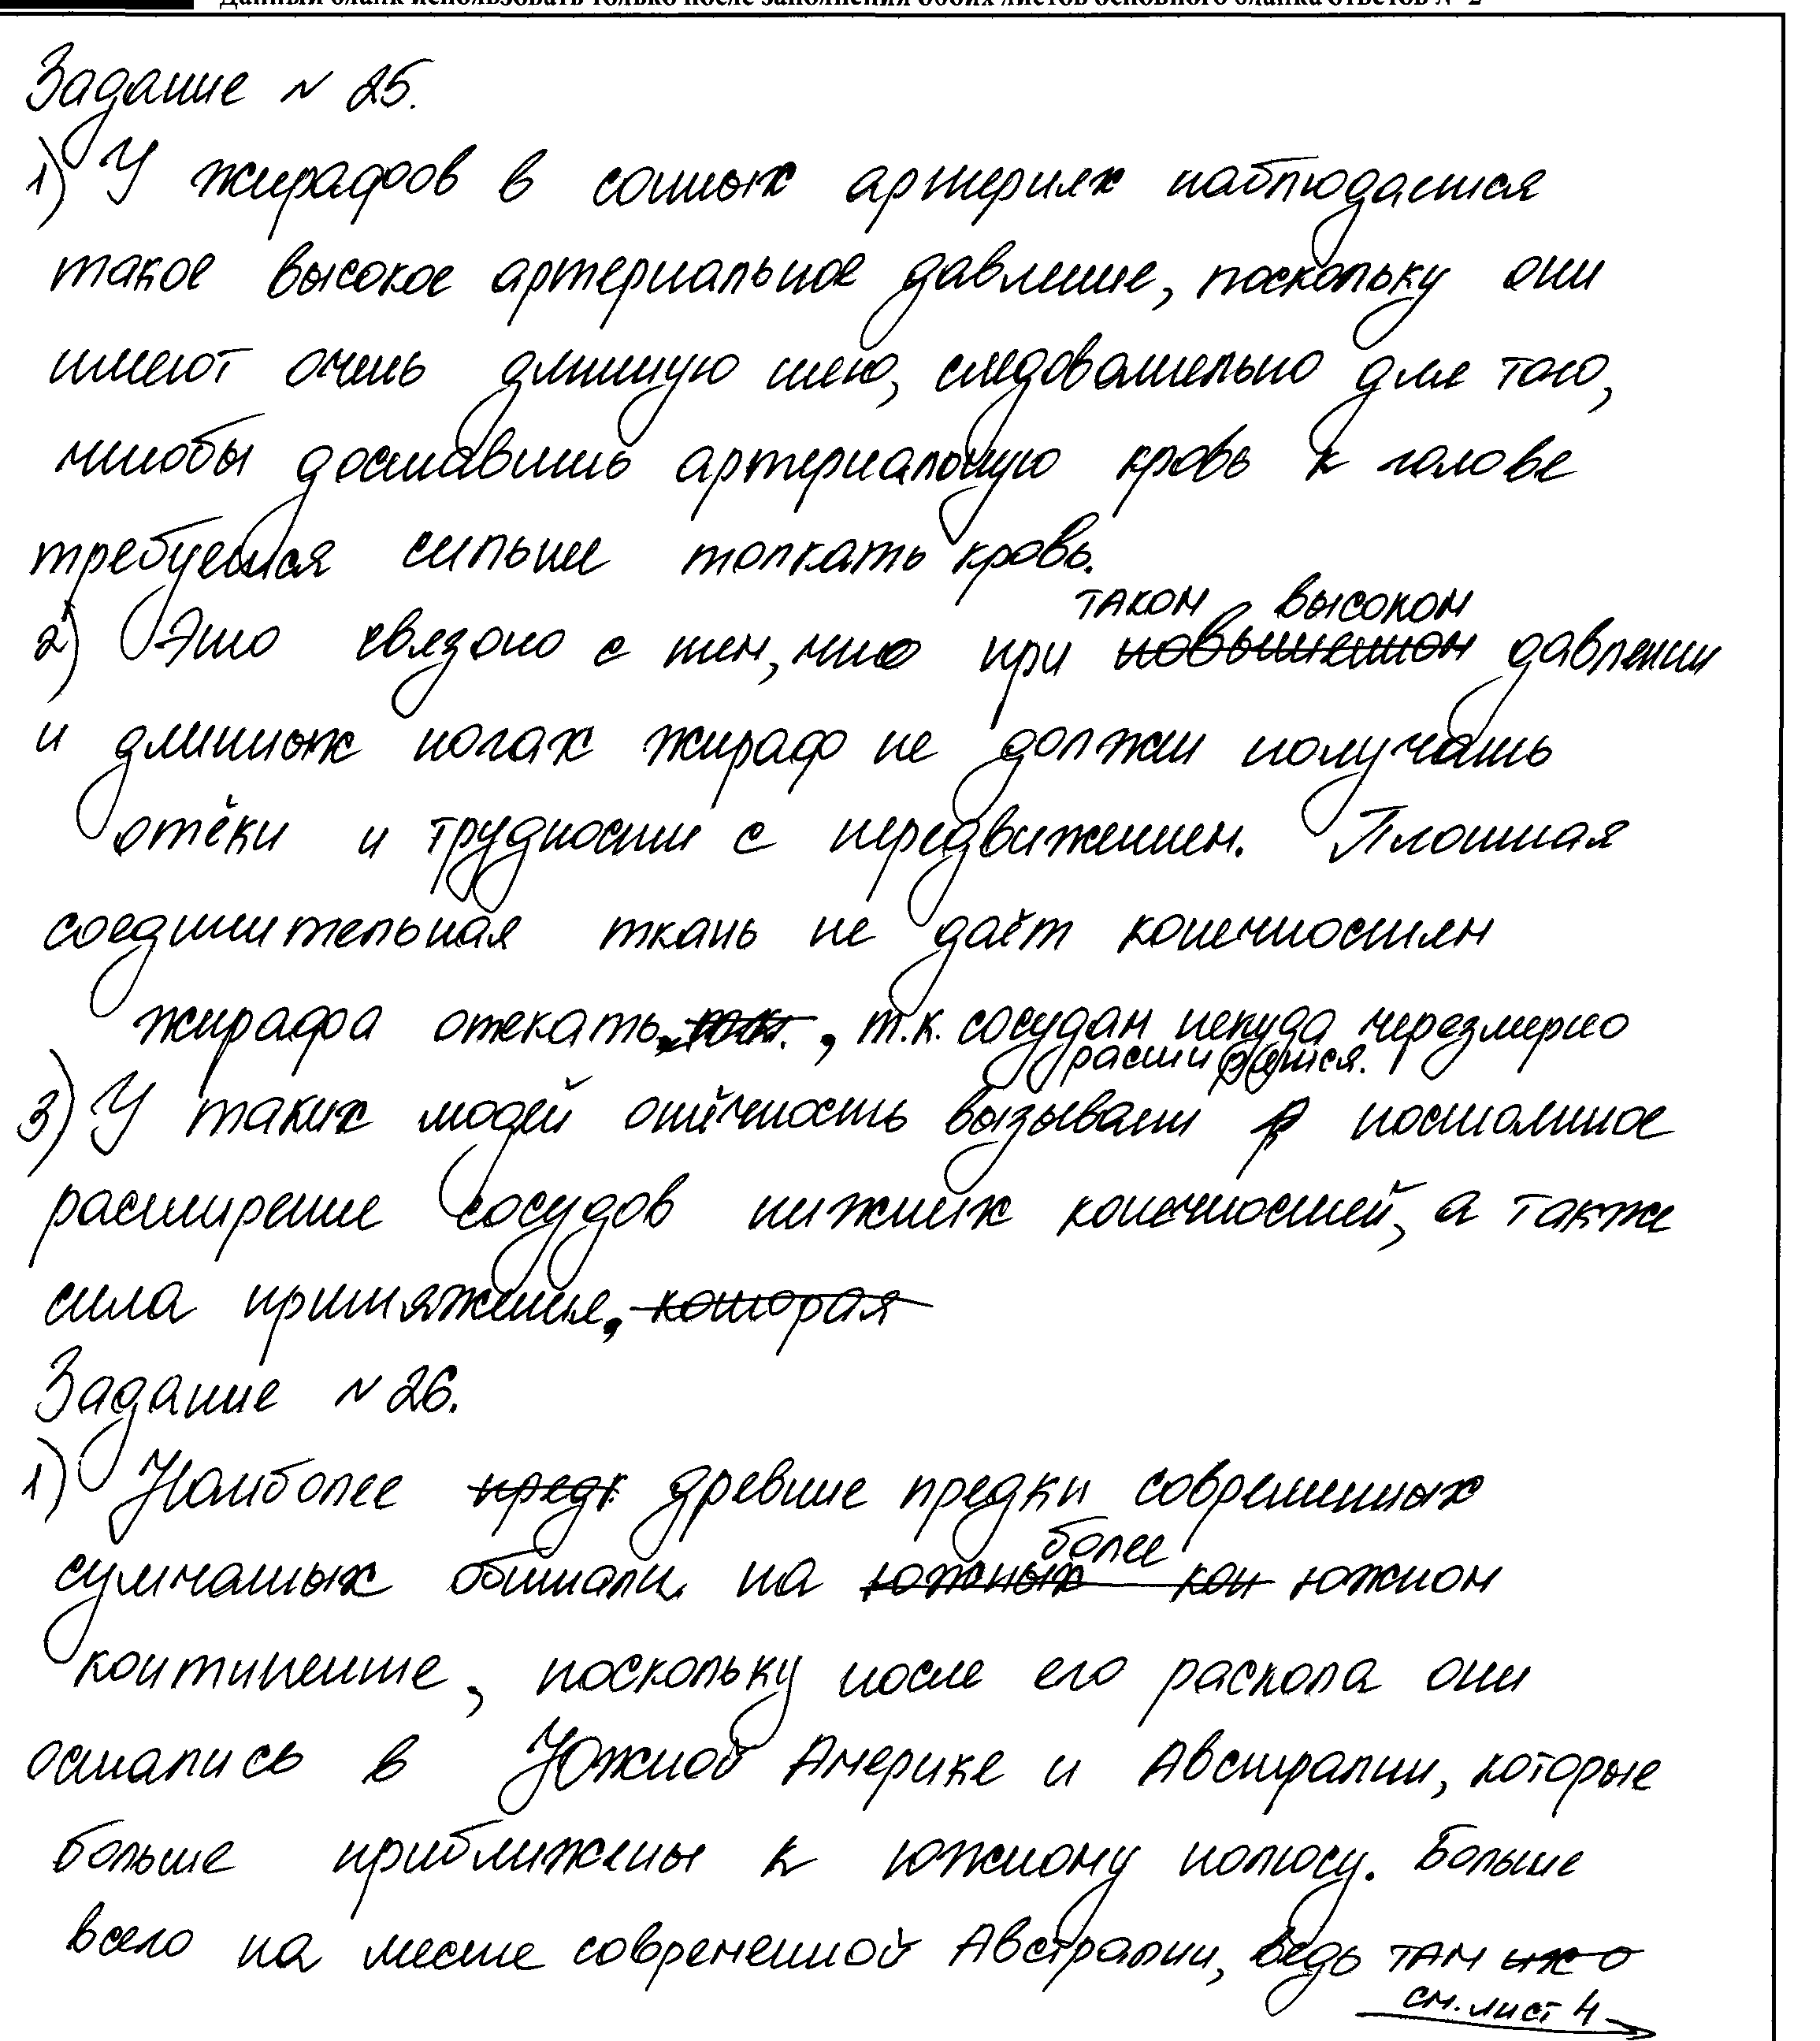 Данный бланк использовать только после заполнения обоих листов основного бланка ответов № 2
Задание № 25.
1) У жирафов в сонных артериях наблюдается
такое высокое артериальное давление, поскольку они
имеют очень длинную шею, следовательно для того,
чтобы доставить артериальную кровь к голове
требуется сильнее толкать кровь.
таком высоком
2) Это связано с тем, что при повышенном давлении
и длинных ногах жираф не должен получать
отёки и трудности с передвижением. Плотная
соединительная ткань не даёт конечностям
жирафа отекать, т.к. сосудам некуда черезмерно
расширятся.
3) У таких людей отёчность вызывает р постоянное
расширение сосудов нижних конечностей, а также
сила притяжения, которая
Задание № 26.
1) Наиболее предк древние предки современных
более
сумчатых обитали на южных кон южном
континенте, поскольку после его раскола они
остались в Южной Америке и Австралии, которые
больше приближены к южному полюсу. Больше
всего на месте современной Австралии, ведь там
см. лист 4